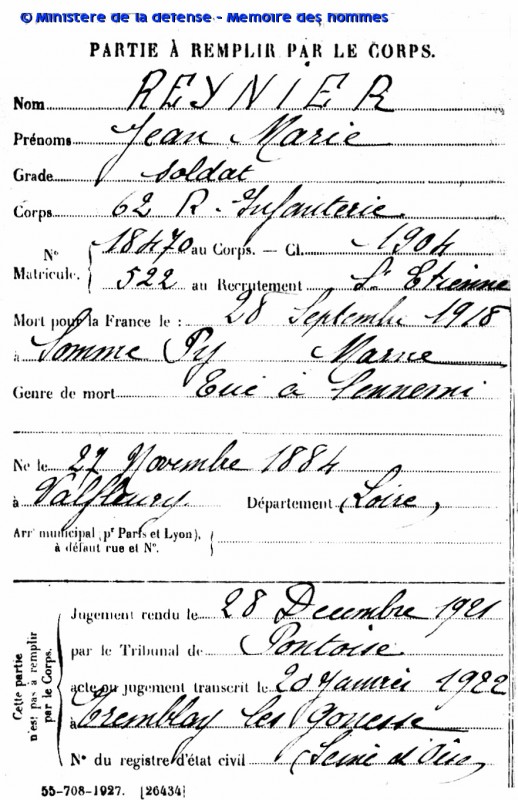 © Ministère de la défense - Mémoire des hommes
PARTIE À REMPLIR PAR LE CORPS.
Nom REYNIER
Prénoms Jean Marie
Grade soldat
Corps 62 R. Infanterie
N° Matricule. 18470 au Corps. — Cl. 1904
522 au Recrutement St Etienne
Mort pour la France le : 28 Septembre 1918
à Somme Py Marne
Genre de mort Tué à l'ennemi
Né le 27 Novembre 1884
à Valfleury Département Loire,
Arrt municipal (pr Paris et Lyon),
à défaut rue et N°.
Cette partie
n'est pas à remplir
par le Corps.
Jugement rendu le 28 Decembre 1921
par le Tribunal de Pontoise
acte ou jugement transcrit le 20 Janvier 1922
à Tremblay les Gonesse
N° du registre d'état civil Seine et Oise
55-708-1927. [26434]